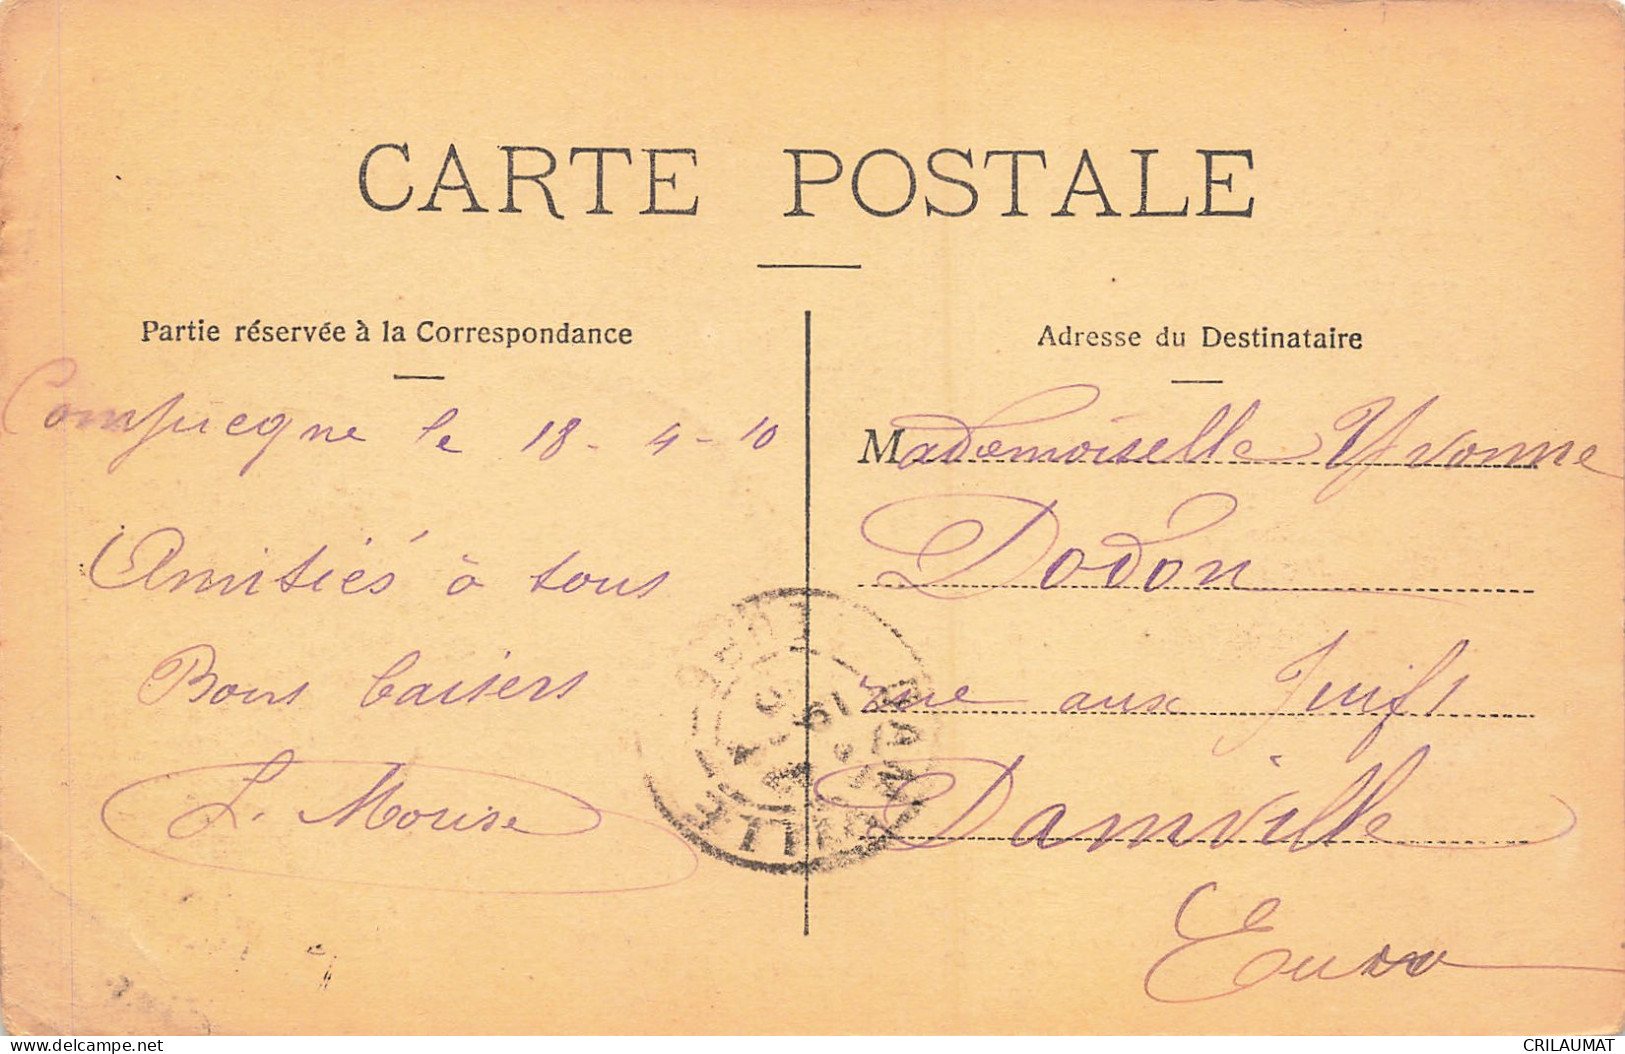 CARTE POSTALE
Partie réservée à la Correspondance
Compiegne le 18-4-10
Amitiés à tous
Bons baisers
L. Morise
Adresse du Destinataire
Mademoiselle Yvonne
Dodon
rue aux Juifs
Damville
Eure
DAMVILLE
19
delcampe.net
CRILAUMAT